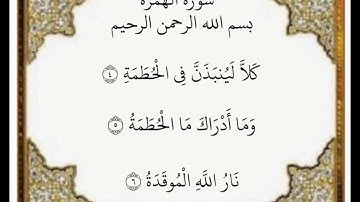 سورة الهمزة
بسم الله الرحمن الرحيم
كَلاَّ لَيُنبَذَنَّ فِى الْحُطَمَةِ ﴿٤﴾
وَمَا أَدْرَاكَ مَا الْحُطَمَةُ ﴿٥﴾
نَارُ اللَّهِ الْمُوقَدَةُ ﴿٦﴾